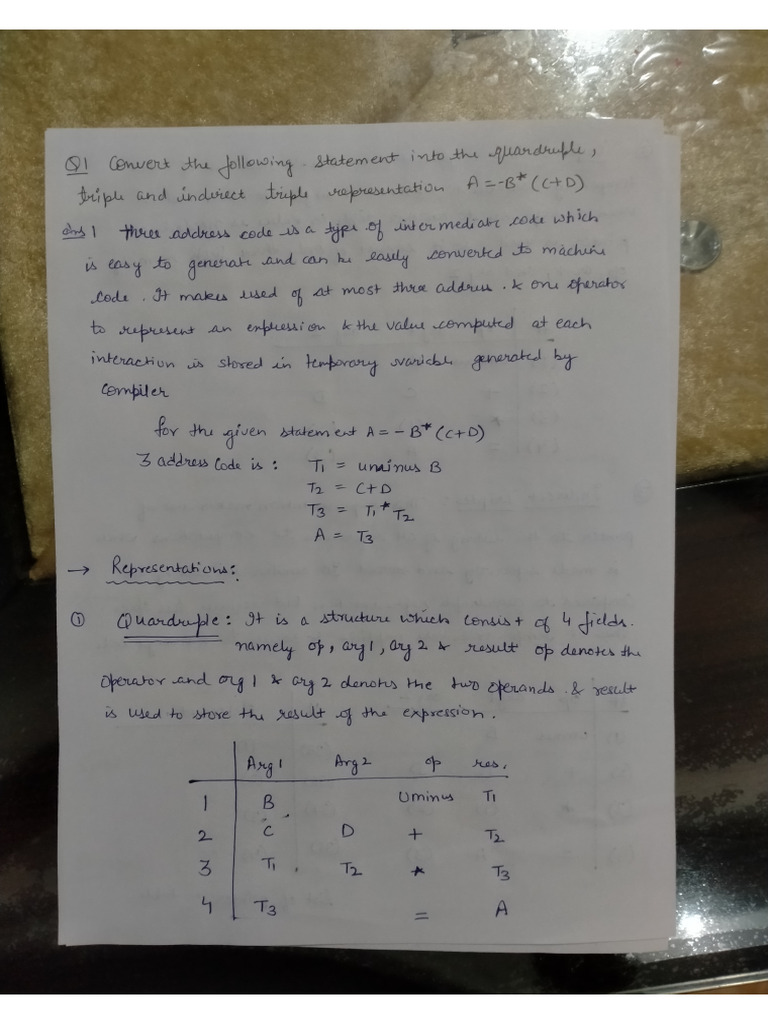 Q1 Convert the following statement into the quardruple,
triple and indirect triple representation A = -B * (C+D)
Ans 1 three address code is a type of intermediate code which
is easy to generate and can be easily converted to machine
code. It makes used of at most three address. & one operator
to represent an expression & the value computed at each
interaction is stored in temporary variable generated by
compiler
for the given statement A = - B * (C+D)
3 address code is : T1 = uminus B
T2 = C+D
T3 = T1 * T2
A = T3
→ Representations:
① Quardruple : It is a structure which consist of 4 fields.
namely op, arg1, arg 2 & result op denotes the
operator and arg 1 & arg 2 denotes the two operands. & result
is used to store the result of the expression.
Arg1 Arg2 op res.
1 B Uminus T1
2 C D + T2
3 T1 T2 * T3
4 T3 = A